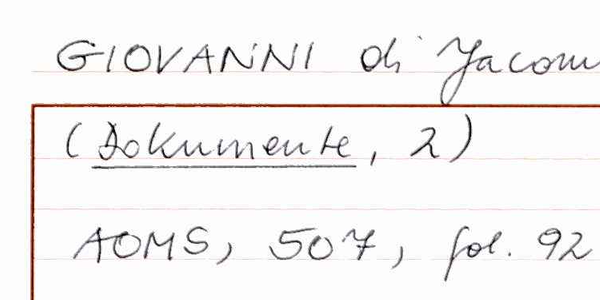 GIOVANNI di Jacom
(Dokumente, 2)
AOMS, 507, fol. 92